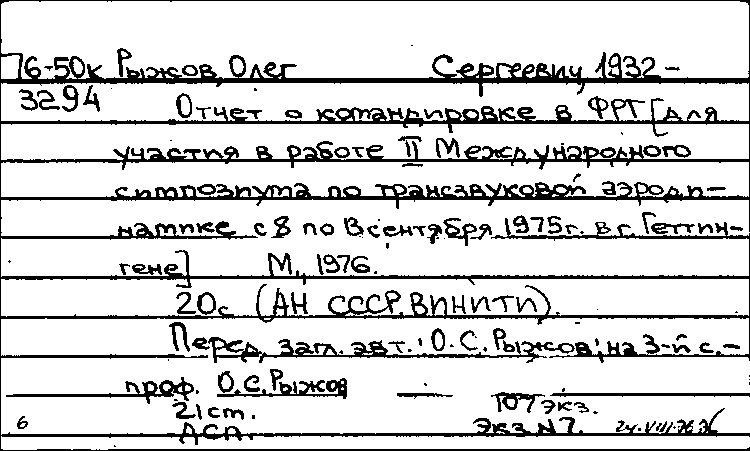 76-50к Рыжов, Олег Сергеевич, 1932-
3294 Отчет о командировке в ФРГ [для
участия в работе II Международного
симпозиума по трансзвуковой аэроди-
намике с 8 по 13 сентября 1975г. в г. Геттин-
гене] М., 1976.
20с (АН СССР. ВИНИТИ).
Перед загл. авт.: О.С. Рыжов; на 3-й с. -
проф. О.С. Рыжов
21 ст. 107 экз.
6 ДСП. Экз N 7. 24.VIII.76